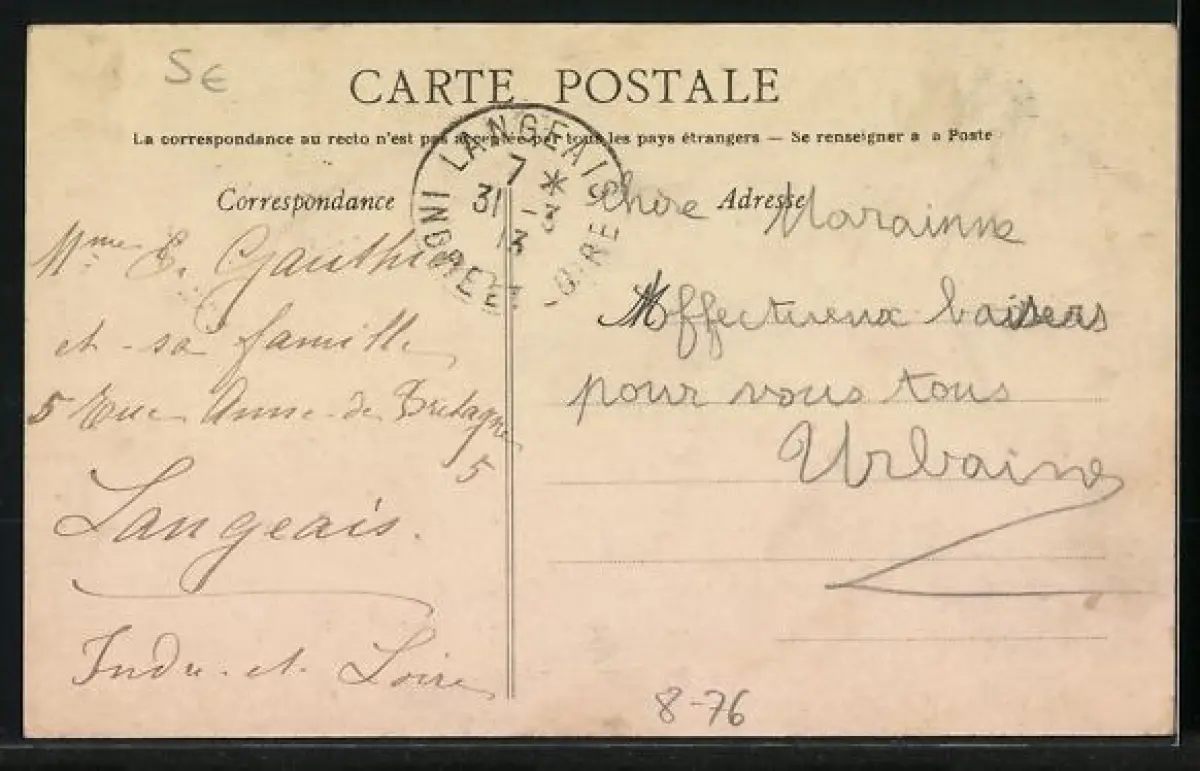 5 €
CARTE POSTALE
La correspondance au recto n'est pas acceptée par tous les pays étrangers — Se renseigner à a Poste
LANGEAIS
INDRE ET LOIRE
7 *
31 - 3
13
Correspondance
Adresse
Mme E. Gauthier
et sa famille
5 Rue Anne de Bretagne
5
Langeais.
Indre et Loire
Chère Marainne
Affectueux baisers
pour vous tous
Urbaine
8-76